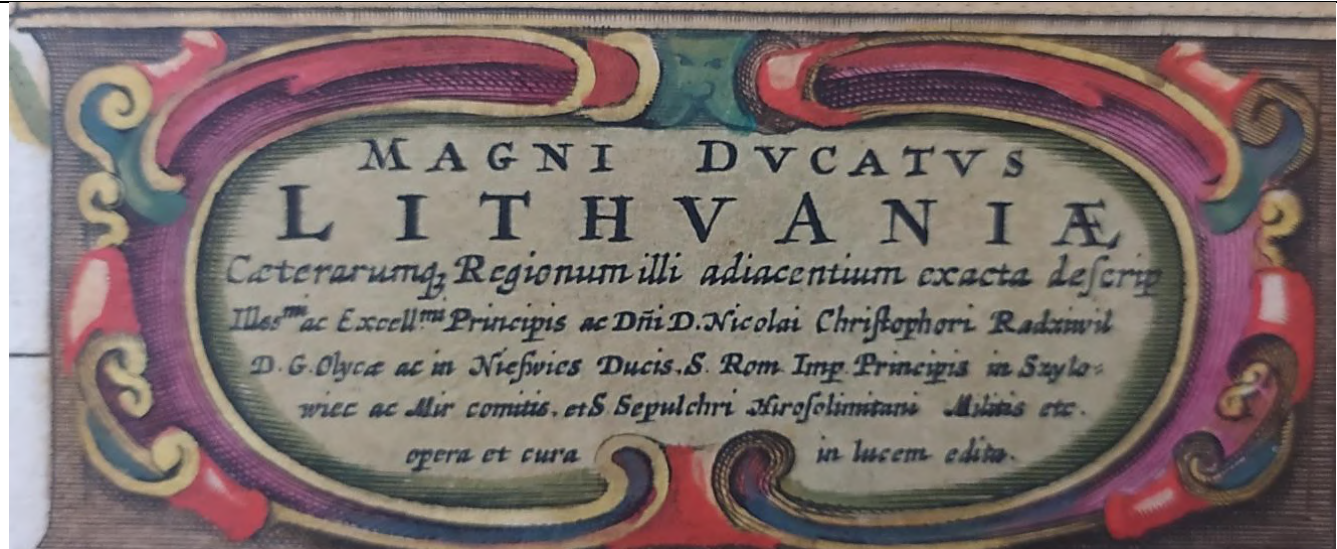 MAGNI DVCATVS
LITHVANIÆ
Cæterarumq̃ Regionum illi adiacentium exacta deſcrip
Illssᵐⁱ ac Excellᵐⁱ Principis ac Dn̄i D. Nicolai Chriſtophori Radziwil
D. G. Olycæ ac in Nieſwies Ducis. S. Rom. Imp. Principis in Szylo⸗
wiec ac Mir comitis. et S Sepulchri Hiroſolimitani Militis etc.
opera et cura in lucem edita.